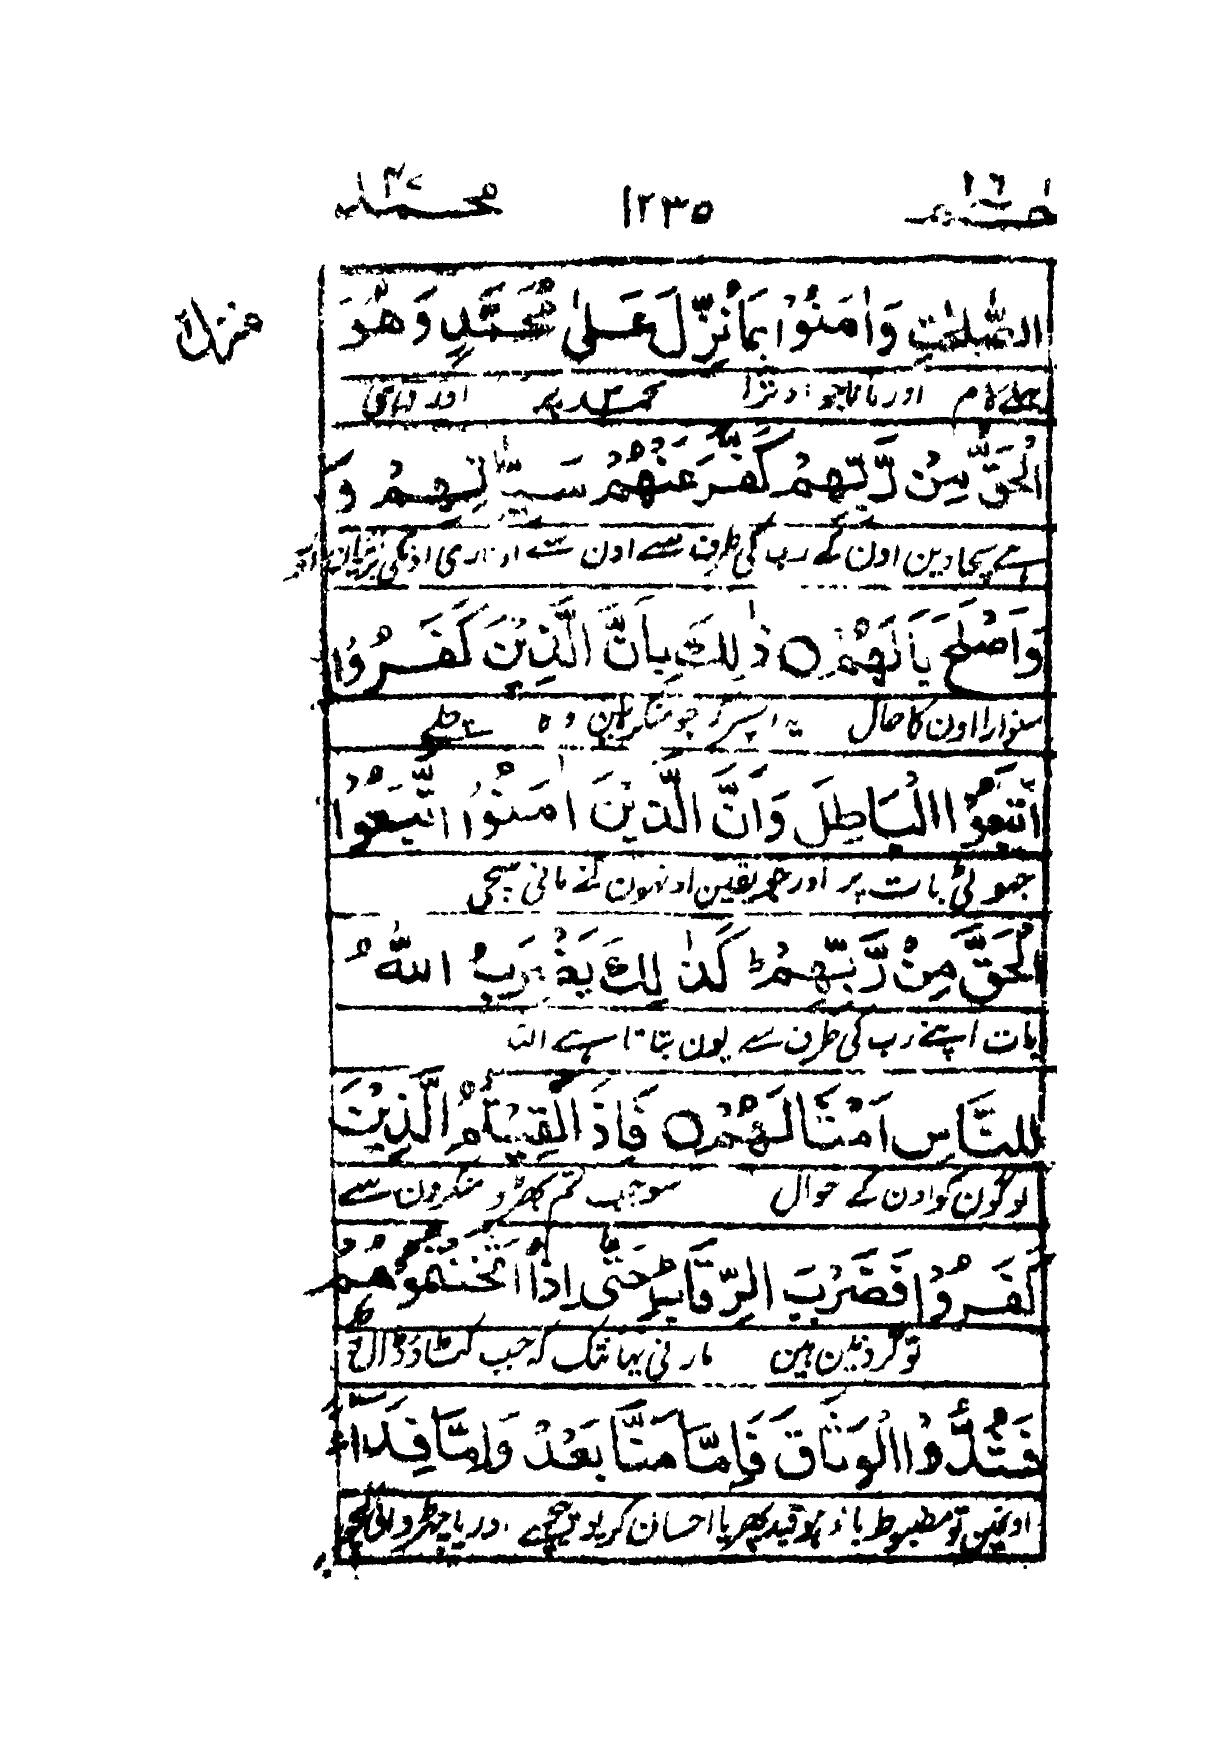 حٰمٓ ٢٦ ١٢٣٥ محمد ٤٧
منزل
الصّٰلِحٰتِ وَاٰمَنُوْا بِمَا نُزِّلَ عَلٰى مُحَمَّدٍ وَّهُوَ
بھلے کام اور مانا جو اوترا محمد پر اور وہی
الْحَقُّ مِنْ رَّبِّهِمْ كَفَّرَ عَنْهُمْ سَيِّاٰتِهِمْ وَ
ہے سچا دین اون کے رب کی طرف سے اون سے اوتاری اونکی برائیان اور
وَاَصْلَحَ بَالَهُمْ ○ ذٰلِكَ بِاَنَّ الَّذِيْنَ كَفَرُوا
سنوارا اون کا حال یہ اسپر کہ جو منکر ہین وہ چلے
اتَّبَعُوا الْبَاطِلَ وَاَنَّ الَّذِيْنَ اٰمَنُوا اتَّبَعُوا
جھوٹی بات پر اور جو یقین اونہون نے مانی سچی
الْحَقَّ مِنْ رَّبِّهِمْ ط كَذٰلِكَ يَضْرِبُ اللّٰهُ
بات اپنے رب کی طرف سے یون بتاتا ہے اللہ
لِلنَّاسِ اَمْثَالَهُمْ ○ فَاِذَا لَقِيْتُمُ الَّذِيْنَ
لوگون کو اون کے حوال سو جب تم بھڑو منکرون سے
كَفَرُوْا فَضَرْبَ الرِّقَابِ ط حَتّٰى اِذَا اَثْخَنْتُمُوْهُمْ
تو گردنین ہین مارنی یہانتک کہ جب کٹاؤ ڈال چکے
فَشُدُّوا الْوَثَاقَ فَاِمَّا مَنًّا بَعْدُ وَاِمَّا فِدَآءً
اونمین تو مضبوط باندہو قید پھر یا احسان کریو پیچھے اور یا چھڑوائی لیجو